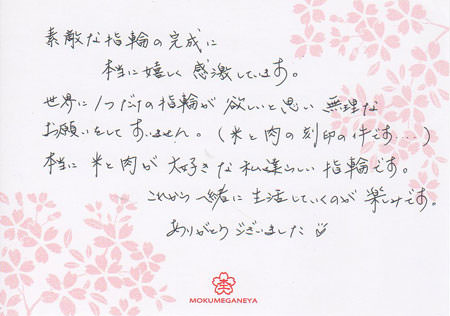 素敵な指輪の完成に
本当に嬉しく感激しています。
世界に1つだけの指輪が欲しいと思い無理な
お願いをしてすいません。(米と肉の刻印の件です....)
本当に米と肉が大好きな私達らしい指輪です。
これから一緒に生活していくのが楽しみです。
ありがとうございました
MOKUMEGANEYA